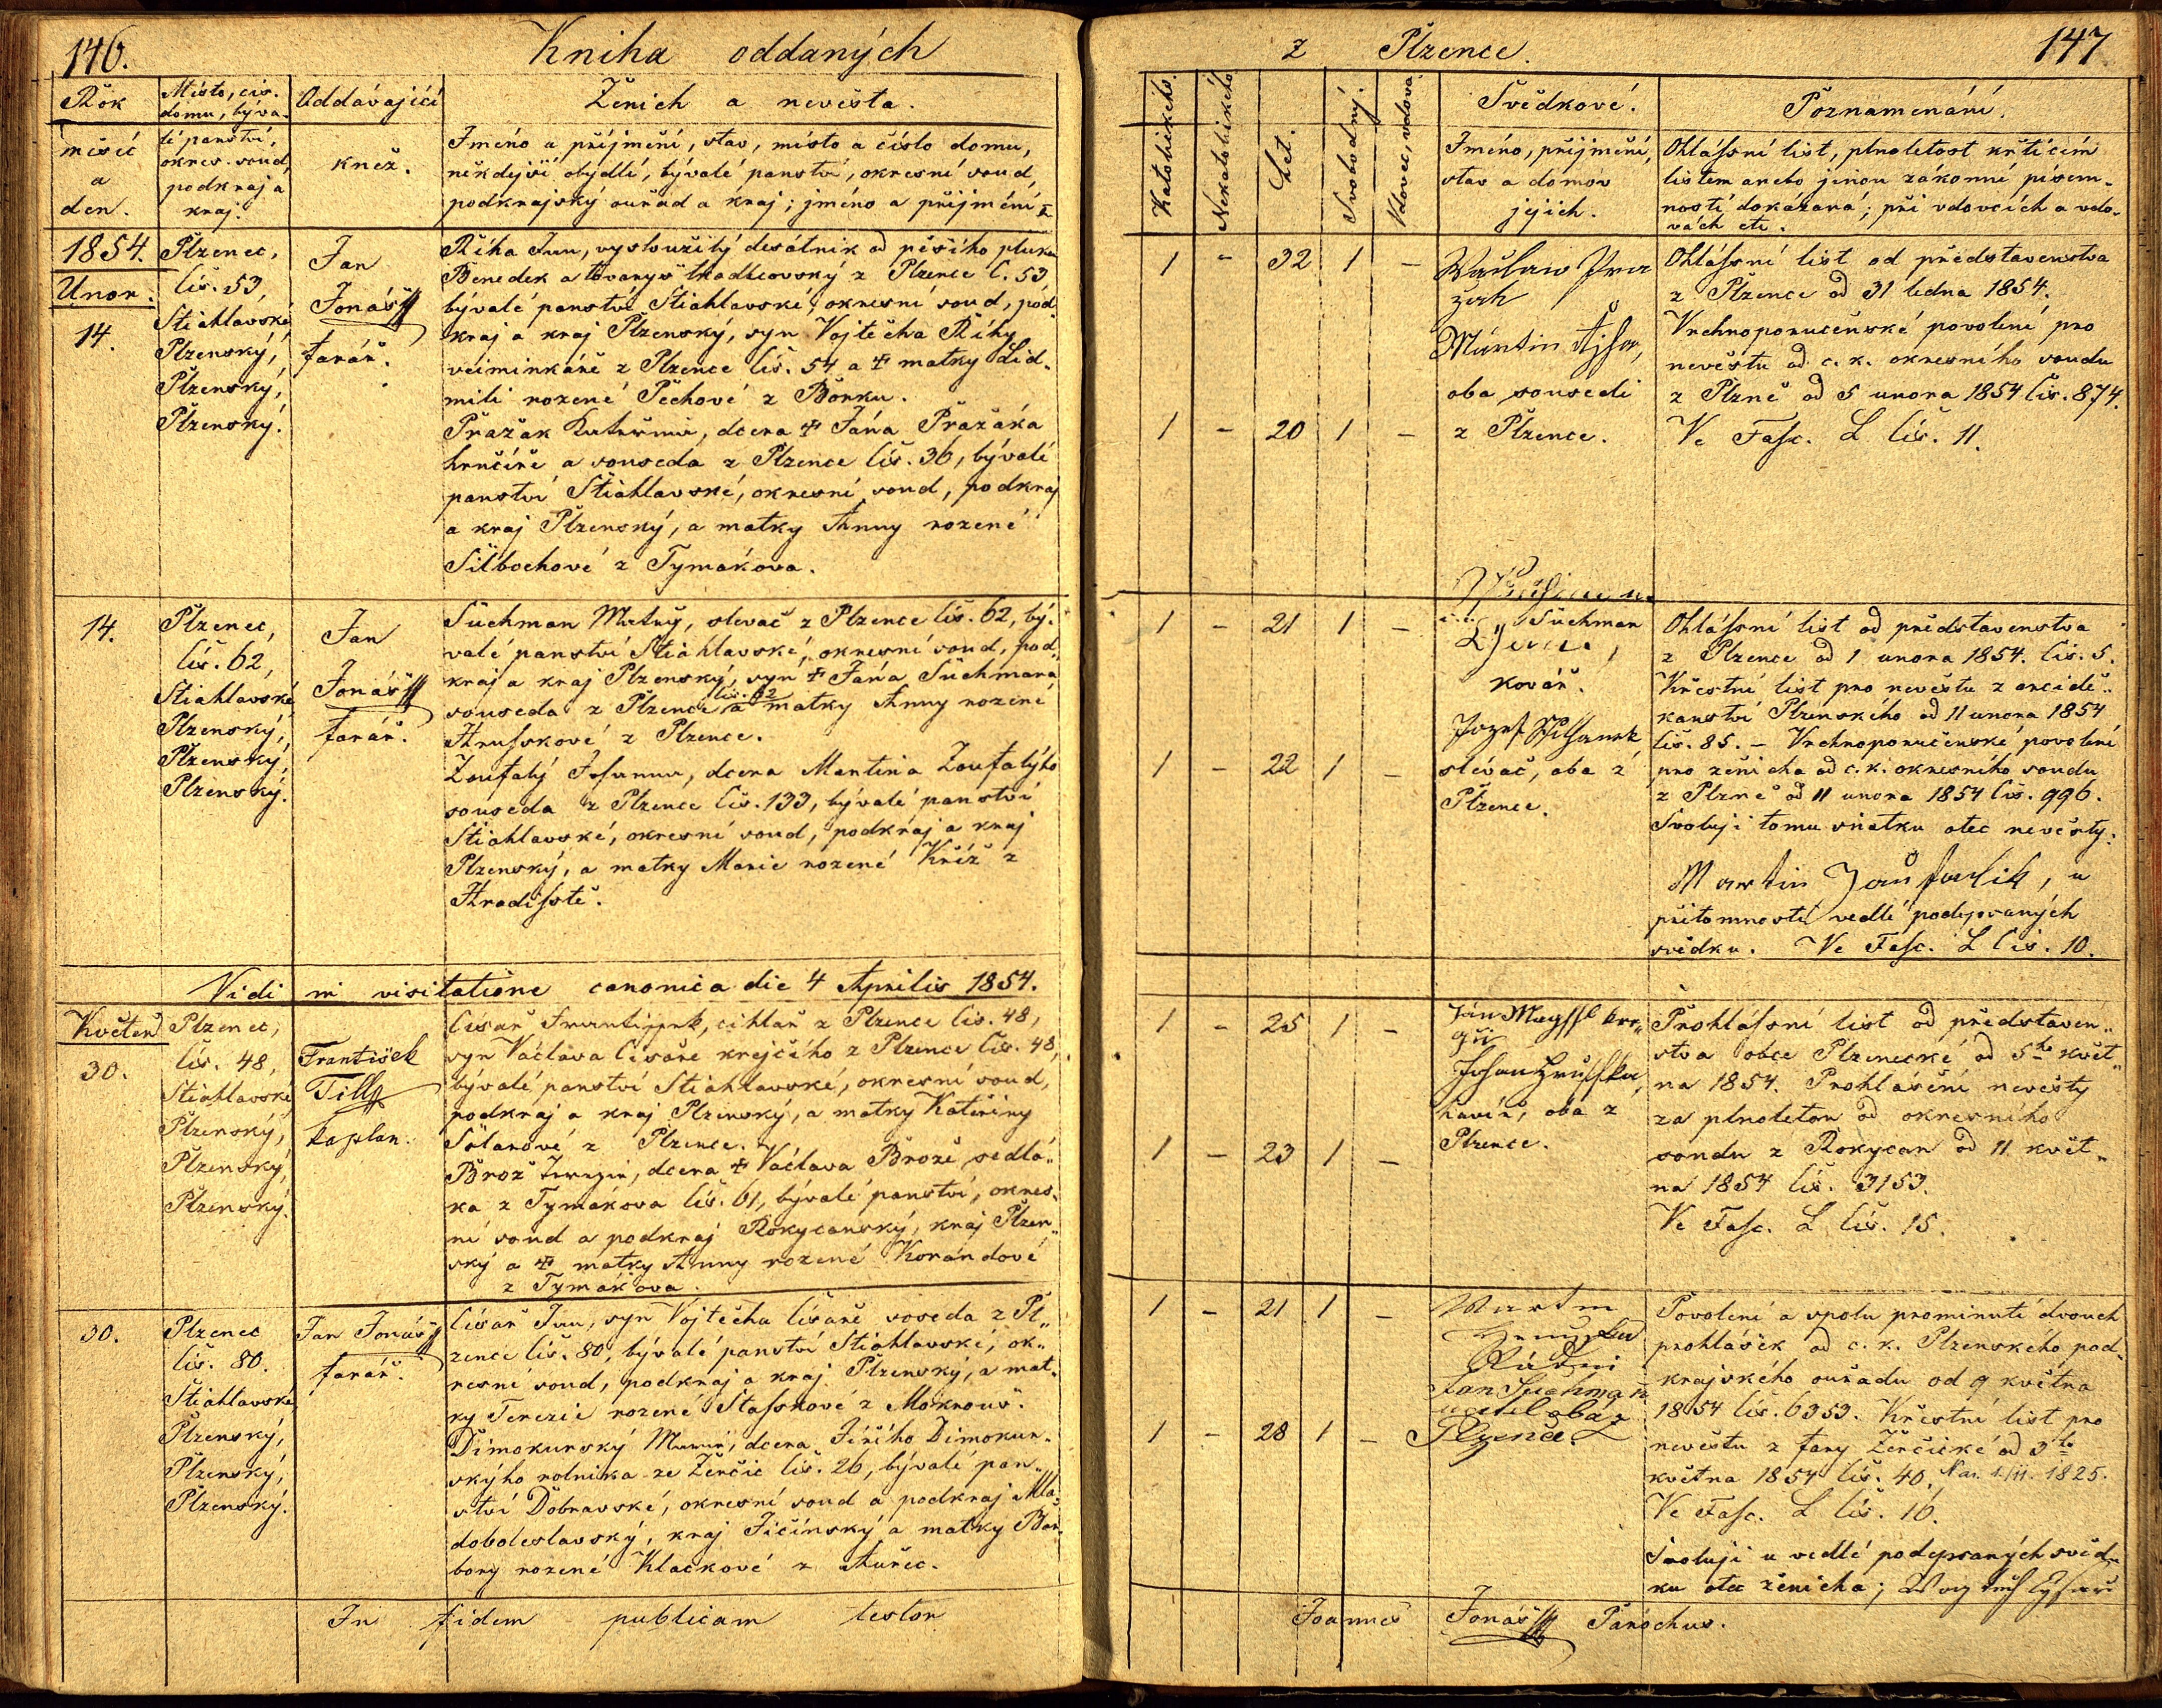 146.
Kniha oddaných
Rok
měsíc
a
den.
Místo, čís.
domu, býva-
lé panství,
okres. soud,
podkraj a
kraj.
Oddávající
kněz.
Ženich a nevěsta.
Jméno a příjmení, stav, místo a číslo domu,
někdejší obydlí, bývalé panství, okresní soud,
podkrajský ouřad a kraj; jméno a příjmení
1854.
Unor.
14.
Plzenec,
čís. 53,
Štiahlavské,
Plzenský,
Plzenský,
Plzenský.
Jan
Jonáš
farář.
Říha Jan, vysloužilý desátník od pěšího pluku
Benedek a tovaryš tkadlcovský z Plzence č. 53
bývalé panství Štiahlavské, okresní soud, pod-
kraj a kraj Plzenský, syn Vojtěcha Říhy,
veiminkáře z Plzence čís. 54 a ☩ matky Lid-
mili rozené Pěchové z Borku.
Pražak Kateřina, dcera ☩ Jána Pražáka
hrnčíře a souseda z Plzence čís. 36, bývalé
panství Štiahlavské, okresní soud, podkraj
a kraj Plzenský, a matky Anny rozené
Silbochové z Tymákova.
14.
Plzenec,
čís. 62,
Štiahlavské
Plzenský,
Plzenský,
Plzenský.
Jan
Jonáš
farář.
Suchman Matěj, slevač z Plzence čís. 62, bý-
valé panství Štiahlavské, okresní soud, pod-
kraj a kraj Plzenský, syn ☩ Jána Suchmana
čís. 62
souseda z Plzence a matky Anny rozené
Hrusskové z Plzence.
Zoufalý Johanna, dcera Martina Zoufalýho
souseda z Plzence čís. 133, bývalé panství
Štiahlavské, okresní soud, podkraj a kraj
Plzenský, a matky Marie rozené Kříž z
Hradisstě.
Vidi in visitatione canonica die 4 Aprilis 1854.
Květen
30.
Plzenec,
čís. 48,
Štiahlavské,
Plzenský,
Plzenský,
Plzenský.
František
Till
kaplan.
Císař Frantissek, cihlař z Plzence čís. 48,
syn Václava Císaře krejčího z Plzence čís. 48,
bývalé panství Štiahlavské, okresní soud,
podkraj a kraj Plzenský, a matky Kateřiny
Solarové z Plzence.
Brož Terezie, dcera ☩ Václava Brože sedlá-
ka z Tymákova čís. 61, bývalé panství, okres-
ní soud a podkraj Rokycanský, kraj Plzen-
ský a ☩ matky Anny rozené Korandové
z Tymákova.
30.
Plzenec
čís. 80.
Štiahlavské
Plzenský,
Plzenský,
Plzenský.
Jan Jonáš
farář.
Císař Jan, syn Vojtěcha Císaře soseda z Pl-
zence čís. 80, bývalé panství Štiahlavské, ok-
resní soud, podkraj a kraj Plzenský, a mat-
ky Terezie rozené Stassnové z Mokrouš.
Dimokurský Marie, dcera Jiřího Dimokur-
skýho rolníka ze Žerčic čís. 26, bývalé pan-
ství Dobravské, okresní soud a podkraj Mla-
doboleslavský, kraj Jičínský a matky Bar-
bory rozené Klačkové z Auřec.
In fidem publicam testor
z Plzence.
147
Katolického.
Nekatolického
Let.
Svobodný.
Vdovec, vdova.
Svědkové.
Jméno, příjmení,
stav a domov
jejich.
Poznamenání.
Ohlássní list, plnoletost křticím
listem anebo jinou zákonní písem-
ností dokázaná; při vdovcích a vdo-
vách etc.
1 - 32 1 -
Waclaw
Martin
oba sousedi
1 - 20 1 -
z Plzence.
Ohlássní list od představenstva
z Plzence od 31 ledna 1854.
Vrchnoporučenské povolení pro
nevěstu od c. k. okresního soudu
z Plzně od 5 unora 1854 čís. 874.
Ve Fasc. L čís. 11.
1 - 21 1 -
Suchman
kovář.
Jozef
1 - 22 1 -
slévač, oba z
Plzence.
Ohlássní list od představenstva
z Plzence od 1 unora 1854. čís. 5.
Křestní list pro nevěstu z arcidě-
kanství Plzenského od 11 unora 1854
čís. 85. – Vrchnoporučenské povolení
pro ženicha od c. k. okresního soudu
z Plzně od 11 unora 1854 čís. 996.
Svoluji tomu sňatku otec nevěsty:
Martin Zaufalik, u
přítomnosti vedlé podepsaných
svědku. Ve Fasc. L čís. 10.
1 - 25 1 -
Jan
Johan Hrusska,
havíř, oba z
1 - 23 1 -
Plzence.
Prohlássní list od představen-
stva obce Plzenecké od 5ho květ-
na 1854. Prohlášení nevěsty
za plnoletou od okresního
soudu z Rokycan od 11 květ-
na 1854 čís. 3153.
Ve Fasc. L čís. 15.
1 - 21 1 -
Martin
Jan Suchman
učitel oba z
1 - 28 1 -
Plzence.
Povolení a spolu prominutí dvouch
prohlášek od c. k. Plzenského pod-
krajského ouřadu od 9 května
1854 čís. 6353. Křestní list pro
nevěstu z fary Žerčické od 3ho
května 1854 čís. 40. Nar. 1/11. 1825.
Ve Fasc. L čís. 16.
Svoluji u vedlé podepsaných svěd-
ku otec ženicha;
Joannes Jonáš Parochus.